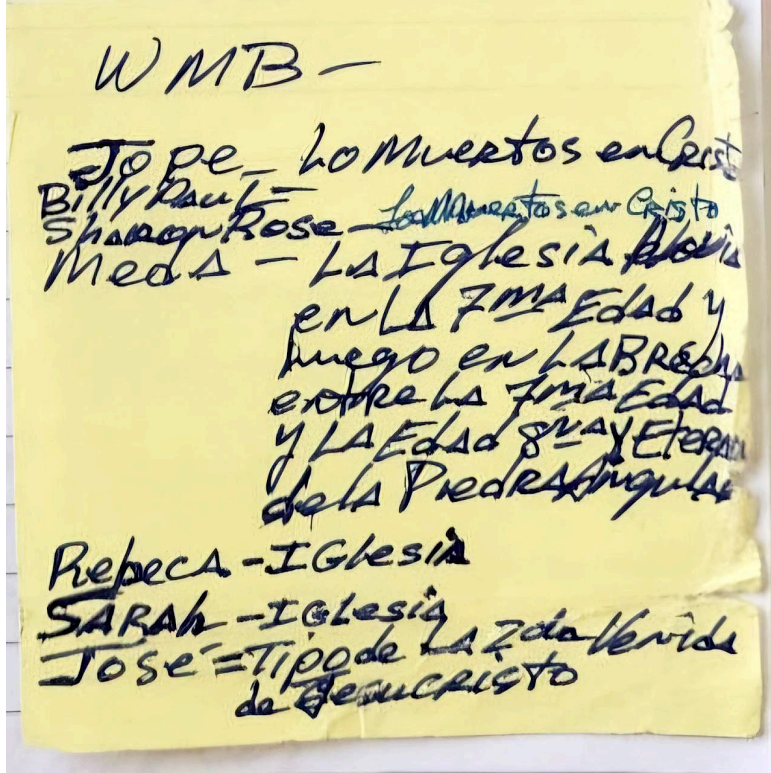 WMB -
Jope - Lo Muertos en Crist
Billy Paul -
Sharon Rose - Los Muertos en Cristo
Meda - LA Iglesia Novia
en LA 7ma Edad y
luego en LA Brecha
entre LA 7ma Edad
y LA Edad 8va y Eterna
de LA Piedra Angular
Rebeca - IGlesia
SARAh - IGlesia
José = Tipo de LA 2da Venida
de Jesucristo